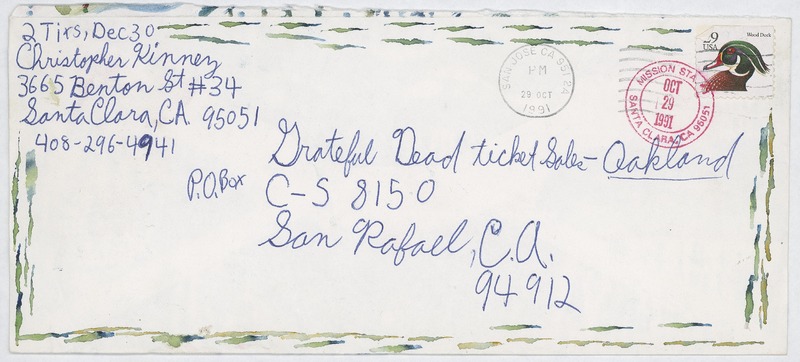 2 Tixs, Dec 30
Christopher Kinney
3665 Benton St #34
Santa Clara, CA. 95051
408-296-4941
Grateful Dead ticket Sales- Oakland
P.O. Box
C-S 8150
San Rafael, C.A.
94912
SAN JOSE CA 951 2A
PM
29 OCT
1991
MISSION STA.
OCT
29
1991
SANTA CLARA, CA 95051
29
USA
Wood Duck